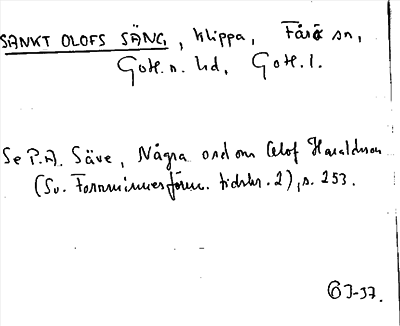 SANKT OLOFS SÄNG, klippa, Fårö sn,
Gotl. n. hd, Gotl. l.
Se P.A. Säve, Några ord om Olof Haraldson
(Sv. Fornminnesfören. tidskr. 2), s. 253.
J-37.